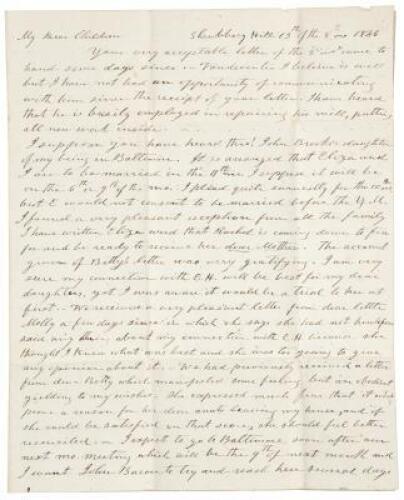 My Dear Children Shrubbery Hill 13th of the 8th mo 1846
Your very acceptable letter of the 2nd inst came to
hand some days since. Vandeventer I believe is well
but I have not had an opportunity of communicating
with him since the receipt of your letter. I have heard
that he is busily employed in repairing his mill, putting
all new work inside
I suppose you have heard thro' John Brooks daughter
of my being in Baltimore. It is arranged that Eliza and
I are to be married in the 11th mo I suppose it will be
on the 6th or 9th of the mo. I plead quite earnestly for the 10th mo
but E would not consent to be married before the Y.M.
I found a very pleasant reception from all the family
I have written Eliza word that Rachel is coming down to fix
for and be ready to receive her dear Mother. The account
given of Betty's letter was very gratifying. I am very
sure my connection with E.H. will be best for my dear
daughters, yet I was aware it would be a trial to her at
first. We received a very pleasant letter from dear little
Molly a few days since in which she says she had not heretofore
said any thing about my connection with E H because she
thought I knew what was best and she was too young to give
any opinion about it. We had previously received a letter
from dear Betty which manifested some feeling but an obedient
yielding to my wishes. She expressed much fear that it might
prove a reason for her dear aunts leaving my house, and if
she could be satisfied on that score, she should feel better
reconciled. I expect to go to Baltimore soon after our
next mo. meeting which will be the 9th of next month and
I want John Bacon to try and reach here several days